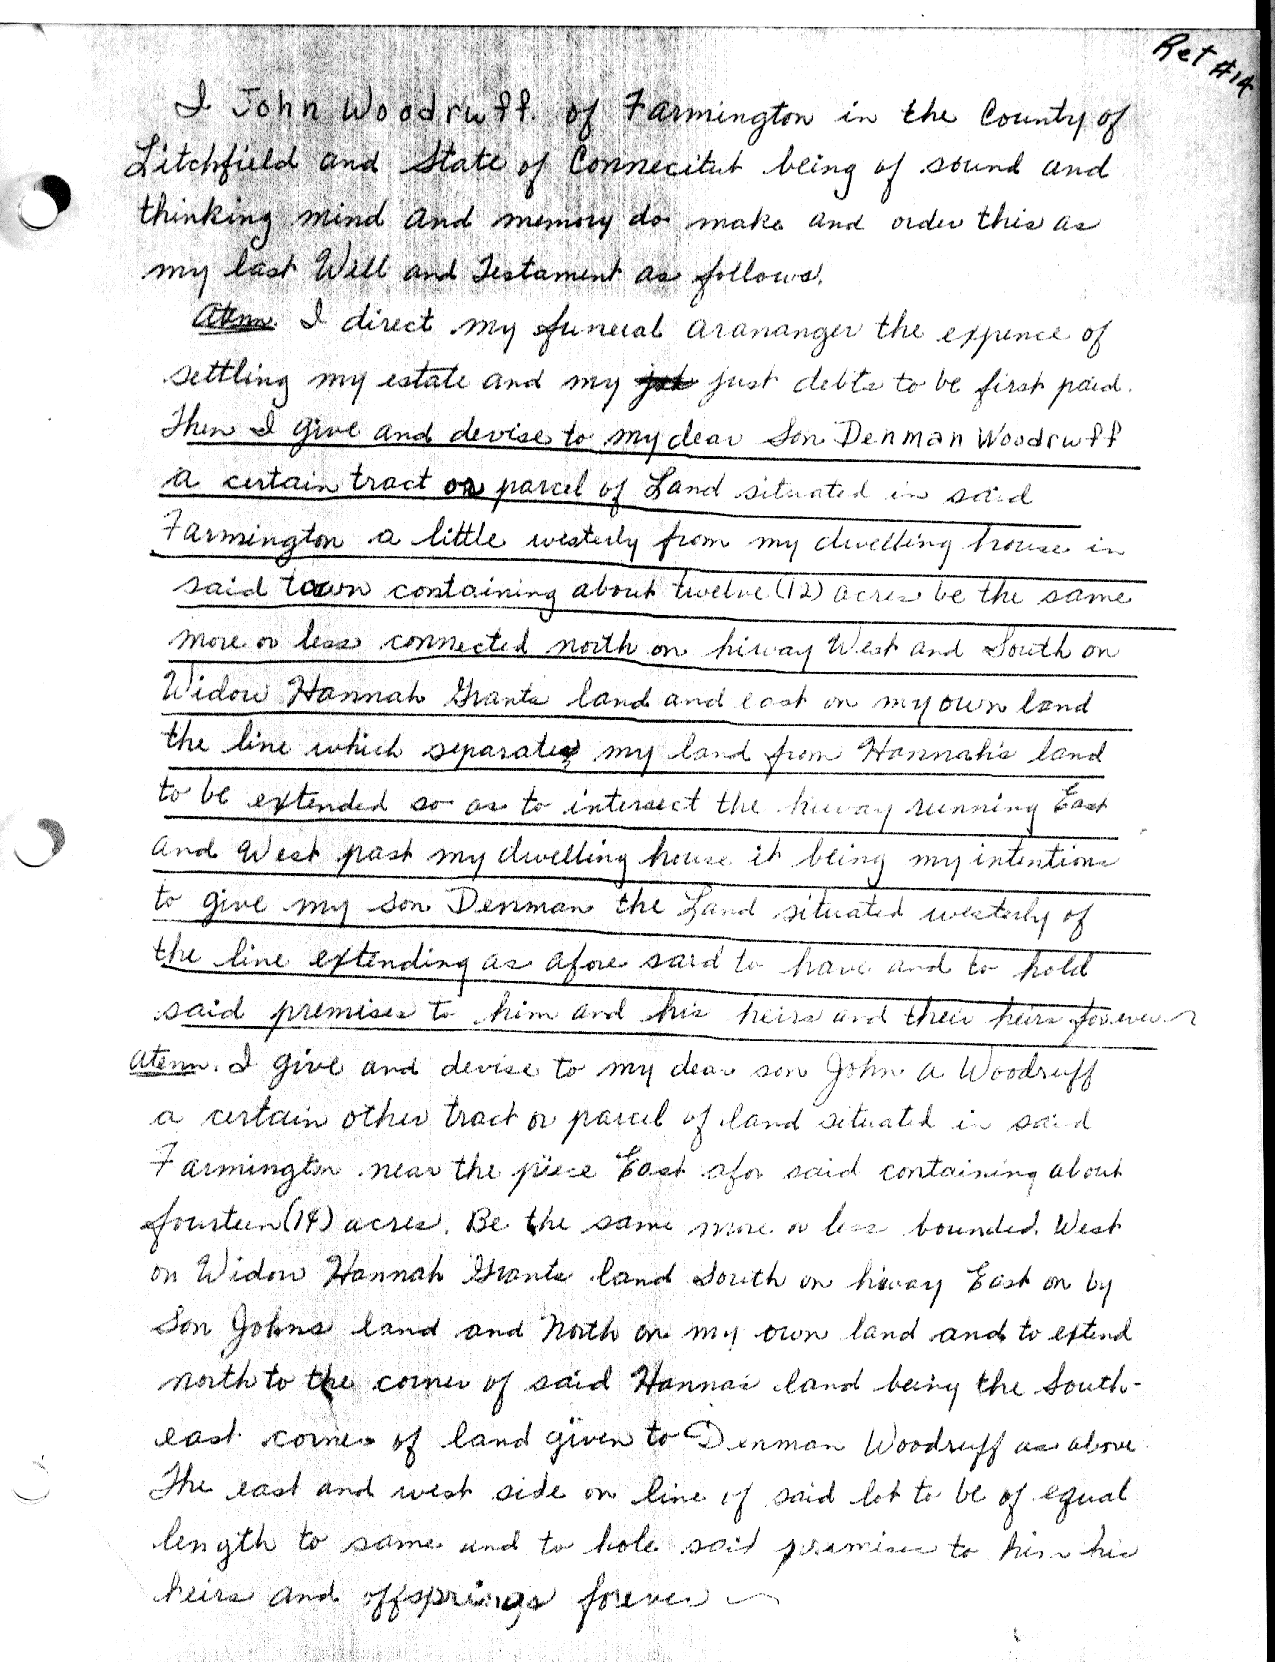 Ret #14
I John Woodruff. of Farmington in the County of
Litchfield and State of Connecitut being of sound and
thinking mind and memory do make and order this as
my last Will and Testament as follows.
Atem I direct my funeral arananger the expence of
settling my estate and my just debts to be first paid.
Then I give and devise to my dear Son Denman Woodruff
a certain tract or parcel of Land situated in said
Farmington a little westerly from my dwelling house in
said town containing about twelve (12) acres be the same
more or less connected north on hiway West and South on
Widow Hannah Grants land and east on my own land
the line which separates my land from Hannah's land
to be extended so as to intersect the hiway running East
and West past my dwelling house it being my intentions
to give my son Denman the Land situated westerly of
the line extending as afore said to have and to hold
said premises to him and his heirs and their heirs forever
Atem. I give and devise to my dear son John A Woodruff
a certain other tract or parcel of land situated in said
Farmington near the piece East afor said containing about
fourteen (14) acres. Be the same more or less bounded. West
on Widow Hannah Grants land South on hiway East on by
Son Johns land and North on my own land and to extend
north to the corner of said Hannas land being the South-
east corner of land given to Denman Woodruff as above
The east and west side on line of said lot to be of equal
length to same and to hole said premises to him his
heirs and offsprings forever